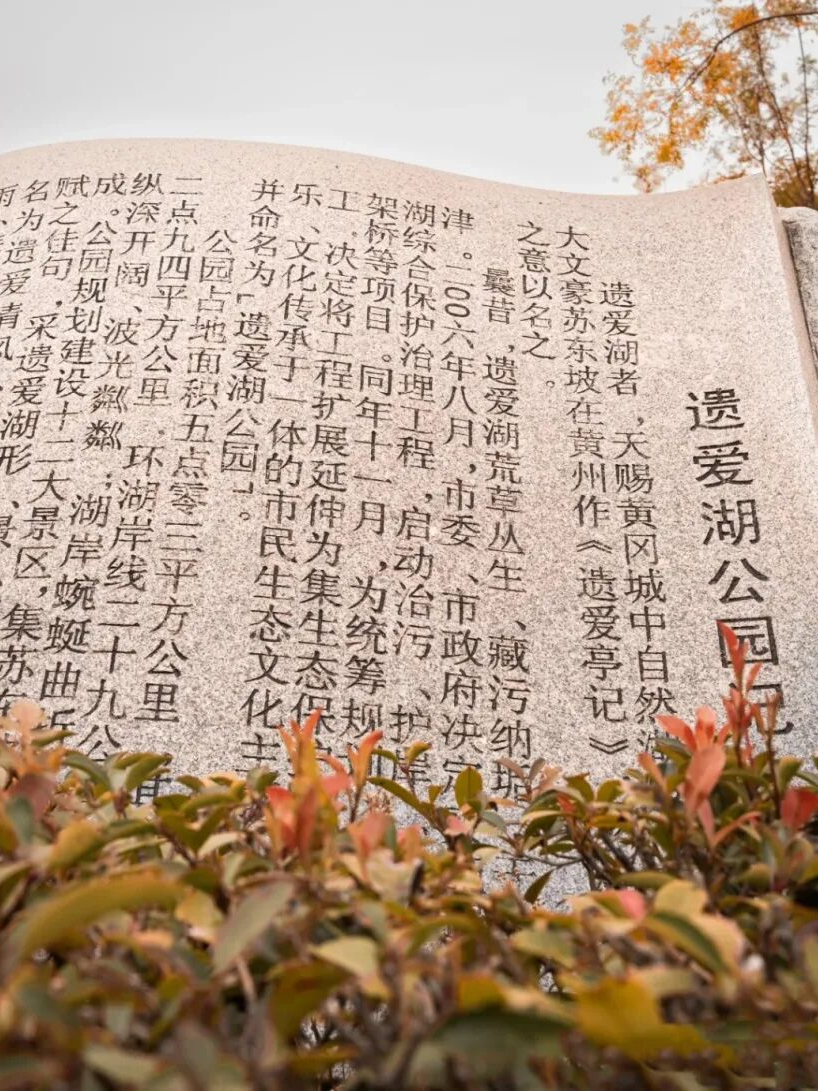 遗爱湖公园记
遗爱湖者，天赐黄冈城中自然湖
大文豪苏东坡在黄州作《遗爱亭记》
之意以名之。
曩昔，遗爱湖荒草丛生、藏污纳垢
津。二00六年八月，市委、市政府决定
湖综合保护治理工程，启动治污、护岸
架桥等项目。同年十一月，为统筹规划
工。决定将工程扩展延伸为集生态保
乐、文化传承于一体的市民生态文化主
并命名为「遗爱湖公园」。
公园占地面积五点零三平方公里
二点九四平方公里。环湖岸线二十九公
纵深开阔、波光粼粼；湖岸蜿蜒曲折
成。公园规划建设十二大景区，集苏东
赋之佳句，采遗爱湖形、景
名为遗爱清风、
雨、